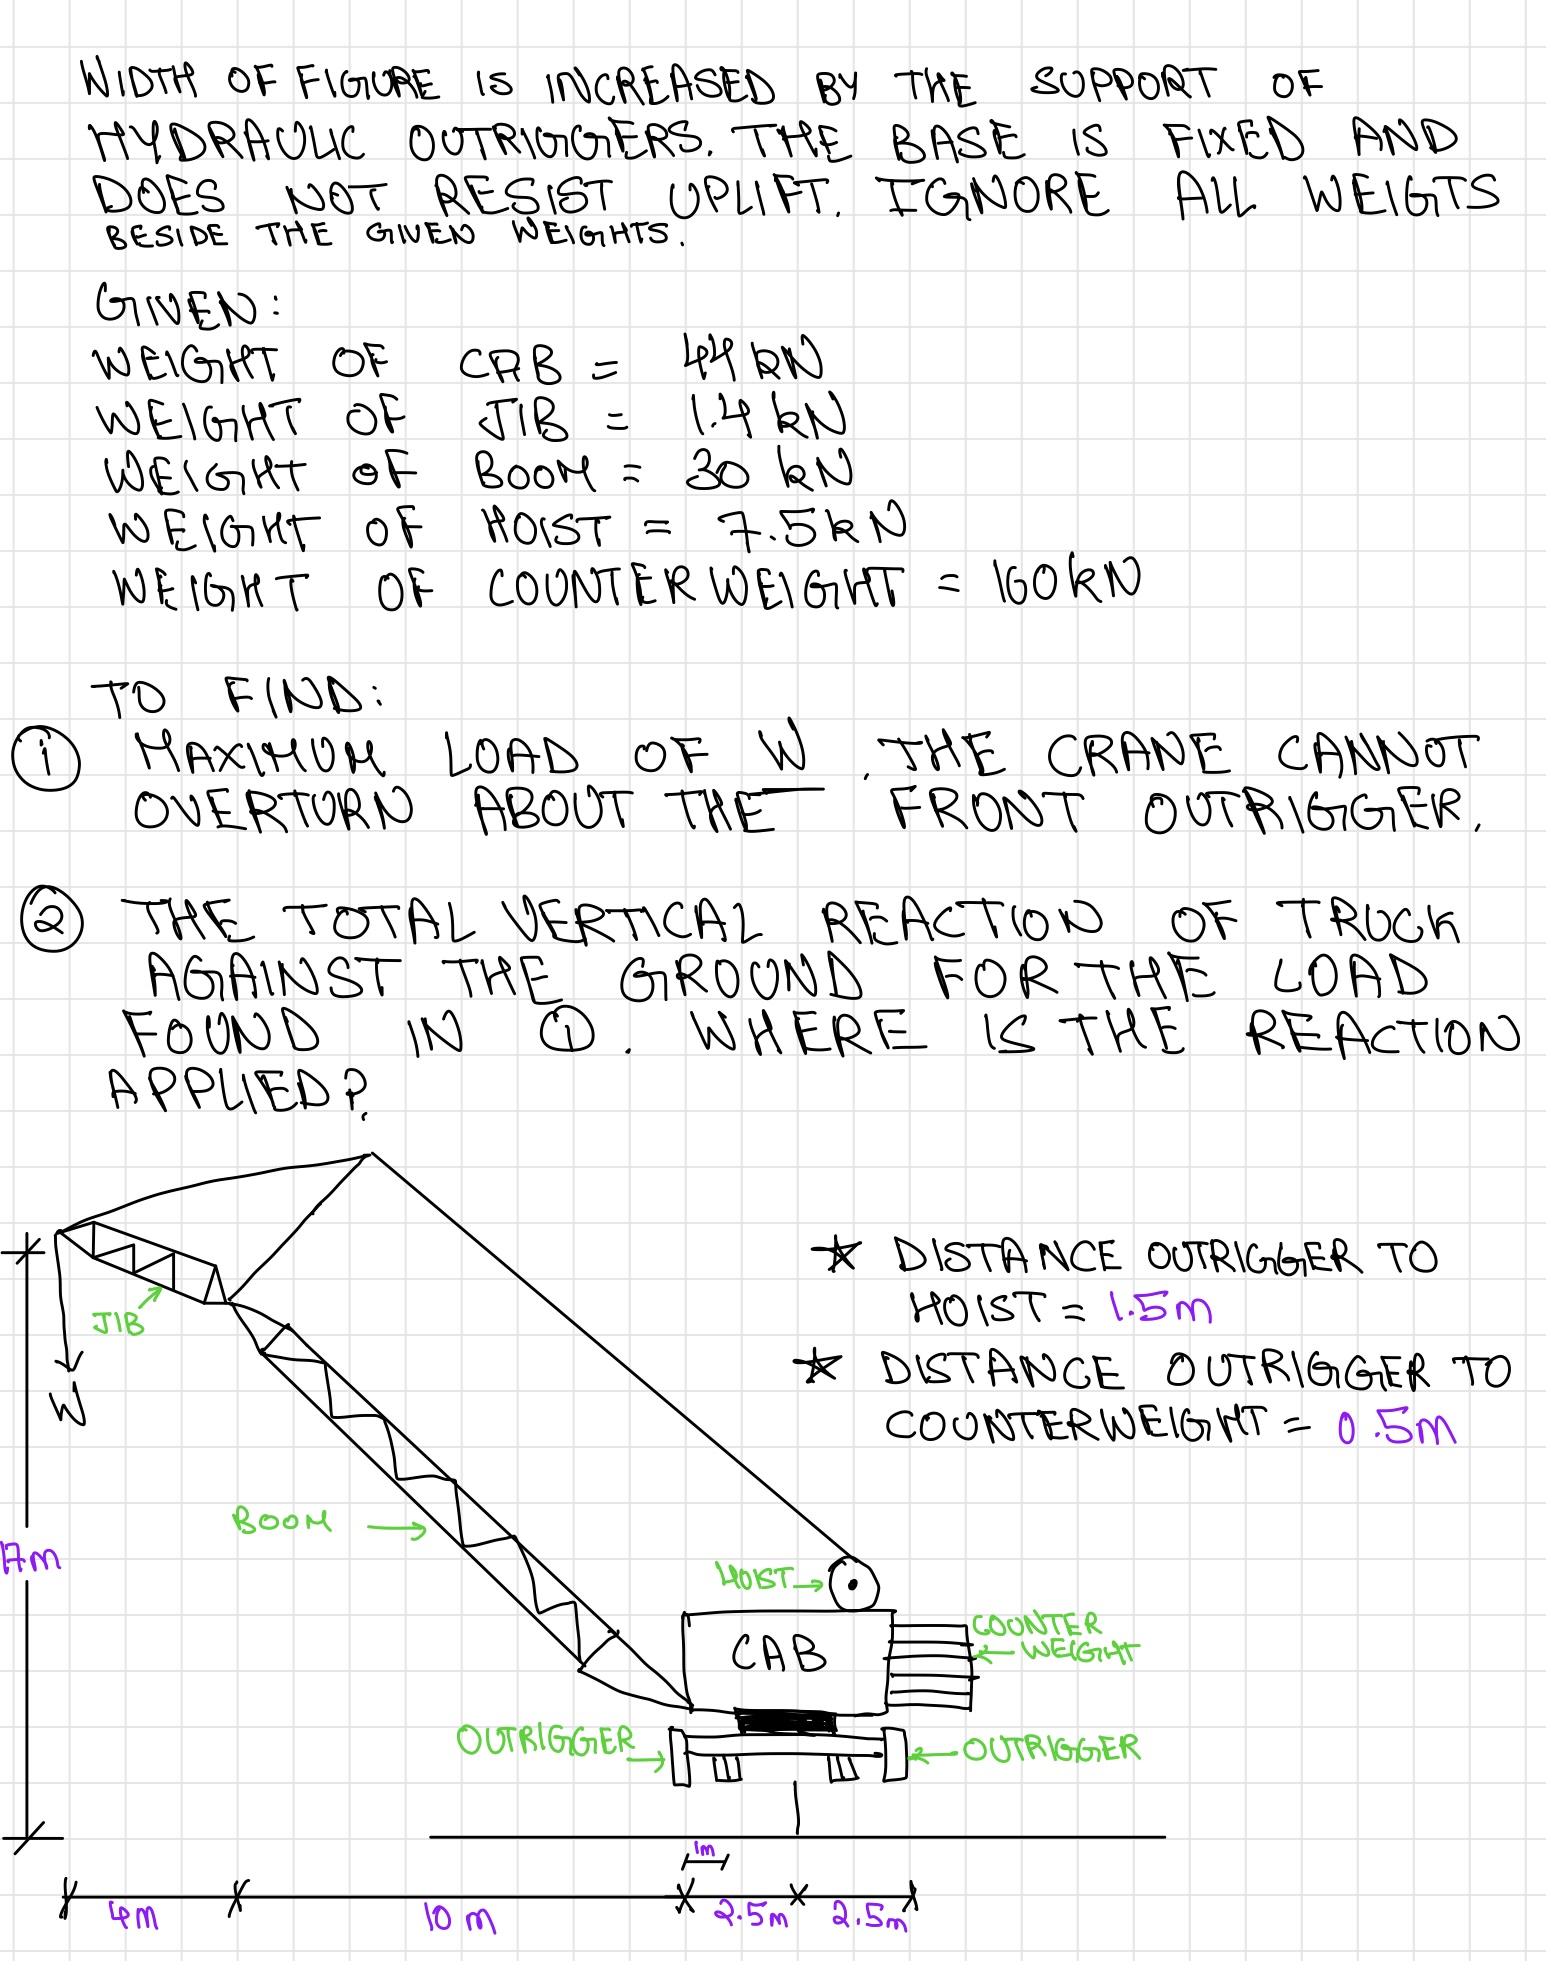 WIDTH OF FIGURE IS INCREASED BY THE SUPPORT OF
HYDRAULIC OUTRIGGERS. THE BASE IS FIXED AND
DOES NOT RESIST UPLIFT. IGNORE ALL WEIGTS
BESIDE THE GIVEN WEIGHTS.
GIVEN:
WEIGHT OF CAB = 44 kN
WEIGHT OF JIB = 1.4 kN
WEIGHT OF BOOM = 30 kN
WEIGHT OF HOIST = 7.5 kN
WEIGHT OF COUNTERWEIGHT = 160 kN
TO FIND:
1 MAXIMUM LOAD OF W. THE CRANE CANNOT
OVERTURN ABOUT THE FRONT OUTRIGGER.
2 THE TOTAL VERTICAL REACTION OF TRUCK
AGAINST THE GROUND FOR THE LOAD
FOUND IN 1. WHERE IS THE REACTION
APPLIED?
★ DISTANCE OUTRIGGER TO
HOIST = 1.5m
★ DISTANCE OUTRIGGER TO
COUNTERWEIGHT = 0.5m
JIB
W
BOOM
17m
HOIST
CAB
COUNTER
WEIGHT
OUTRIGGER
OUTRIGGER
1m
4m
10 m
2.5m
2.5m